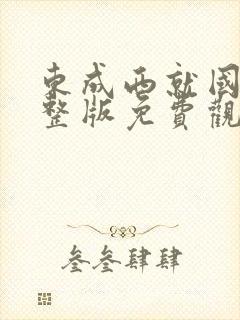 東成西就國
整版免費觀
叁叁肆肆